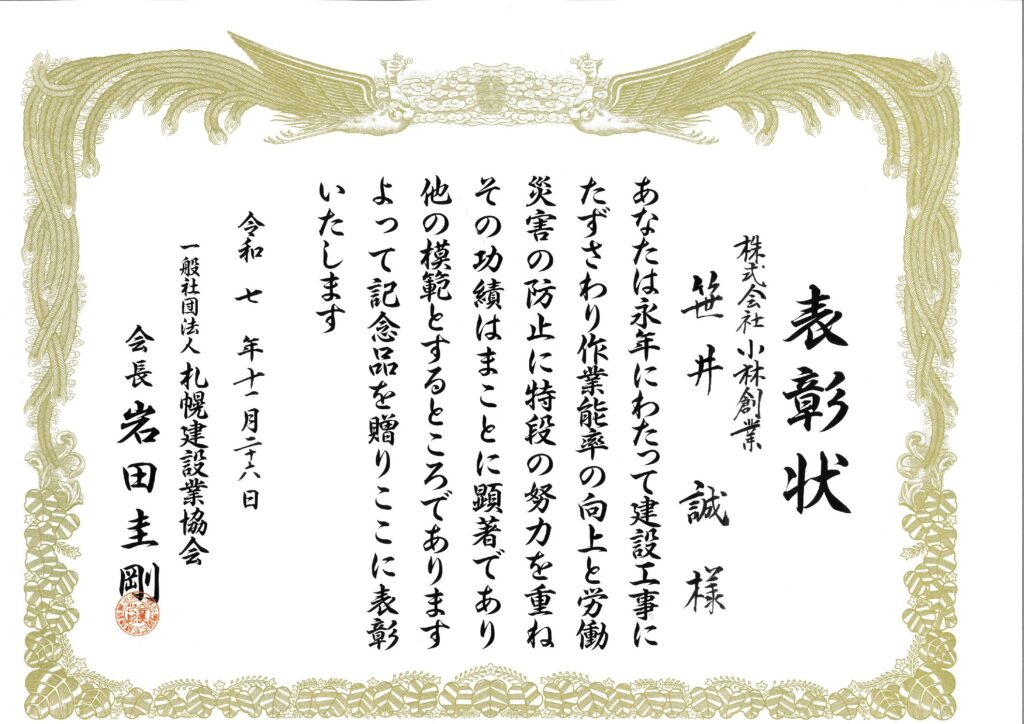 表彰状
株式会社小林創業
笹井誠様
あなたは永年にわたって建設工事に
たずさわり作業能率の向上と労働
災害の防止に特段の努力を重ね
その功績はまことに顕著であり
他の模範とするところであります
よって記念品を贈りここに表彰
いたします
令和七年十一月二十六日
一般社団法人札幌建設業協会
会長岩田圭剛